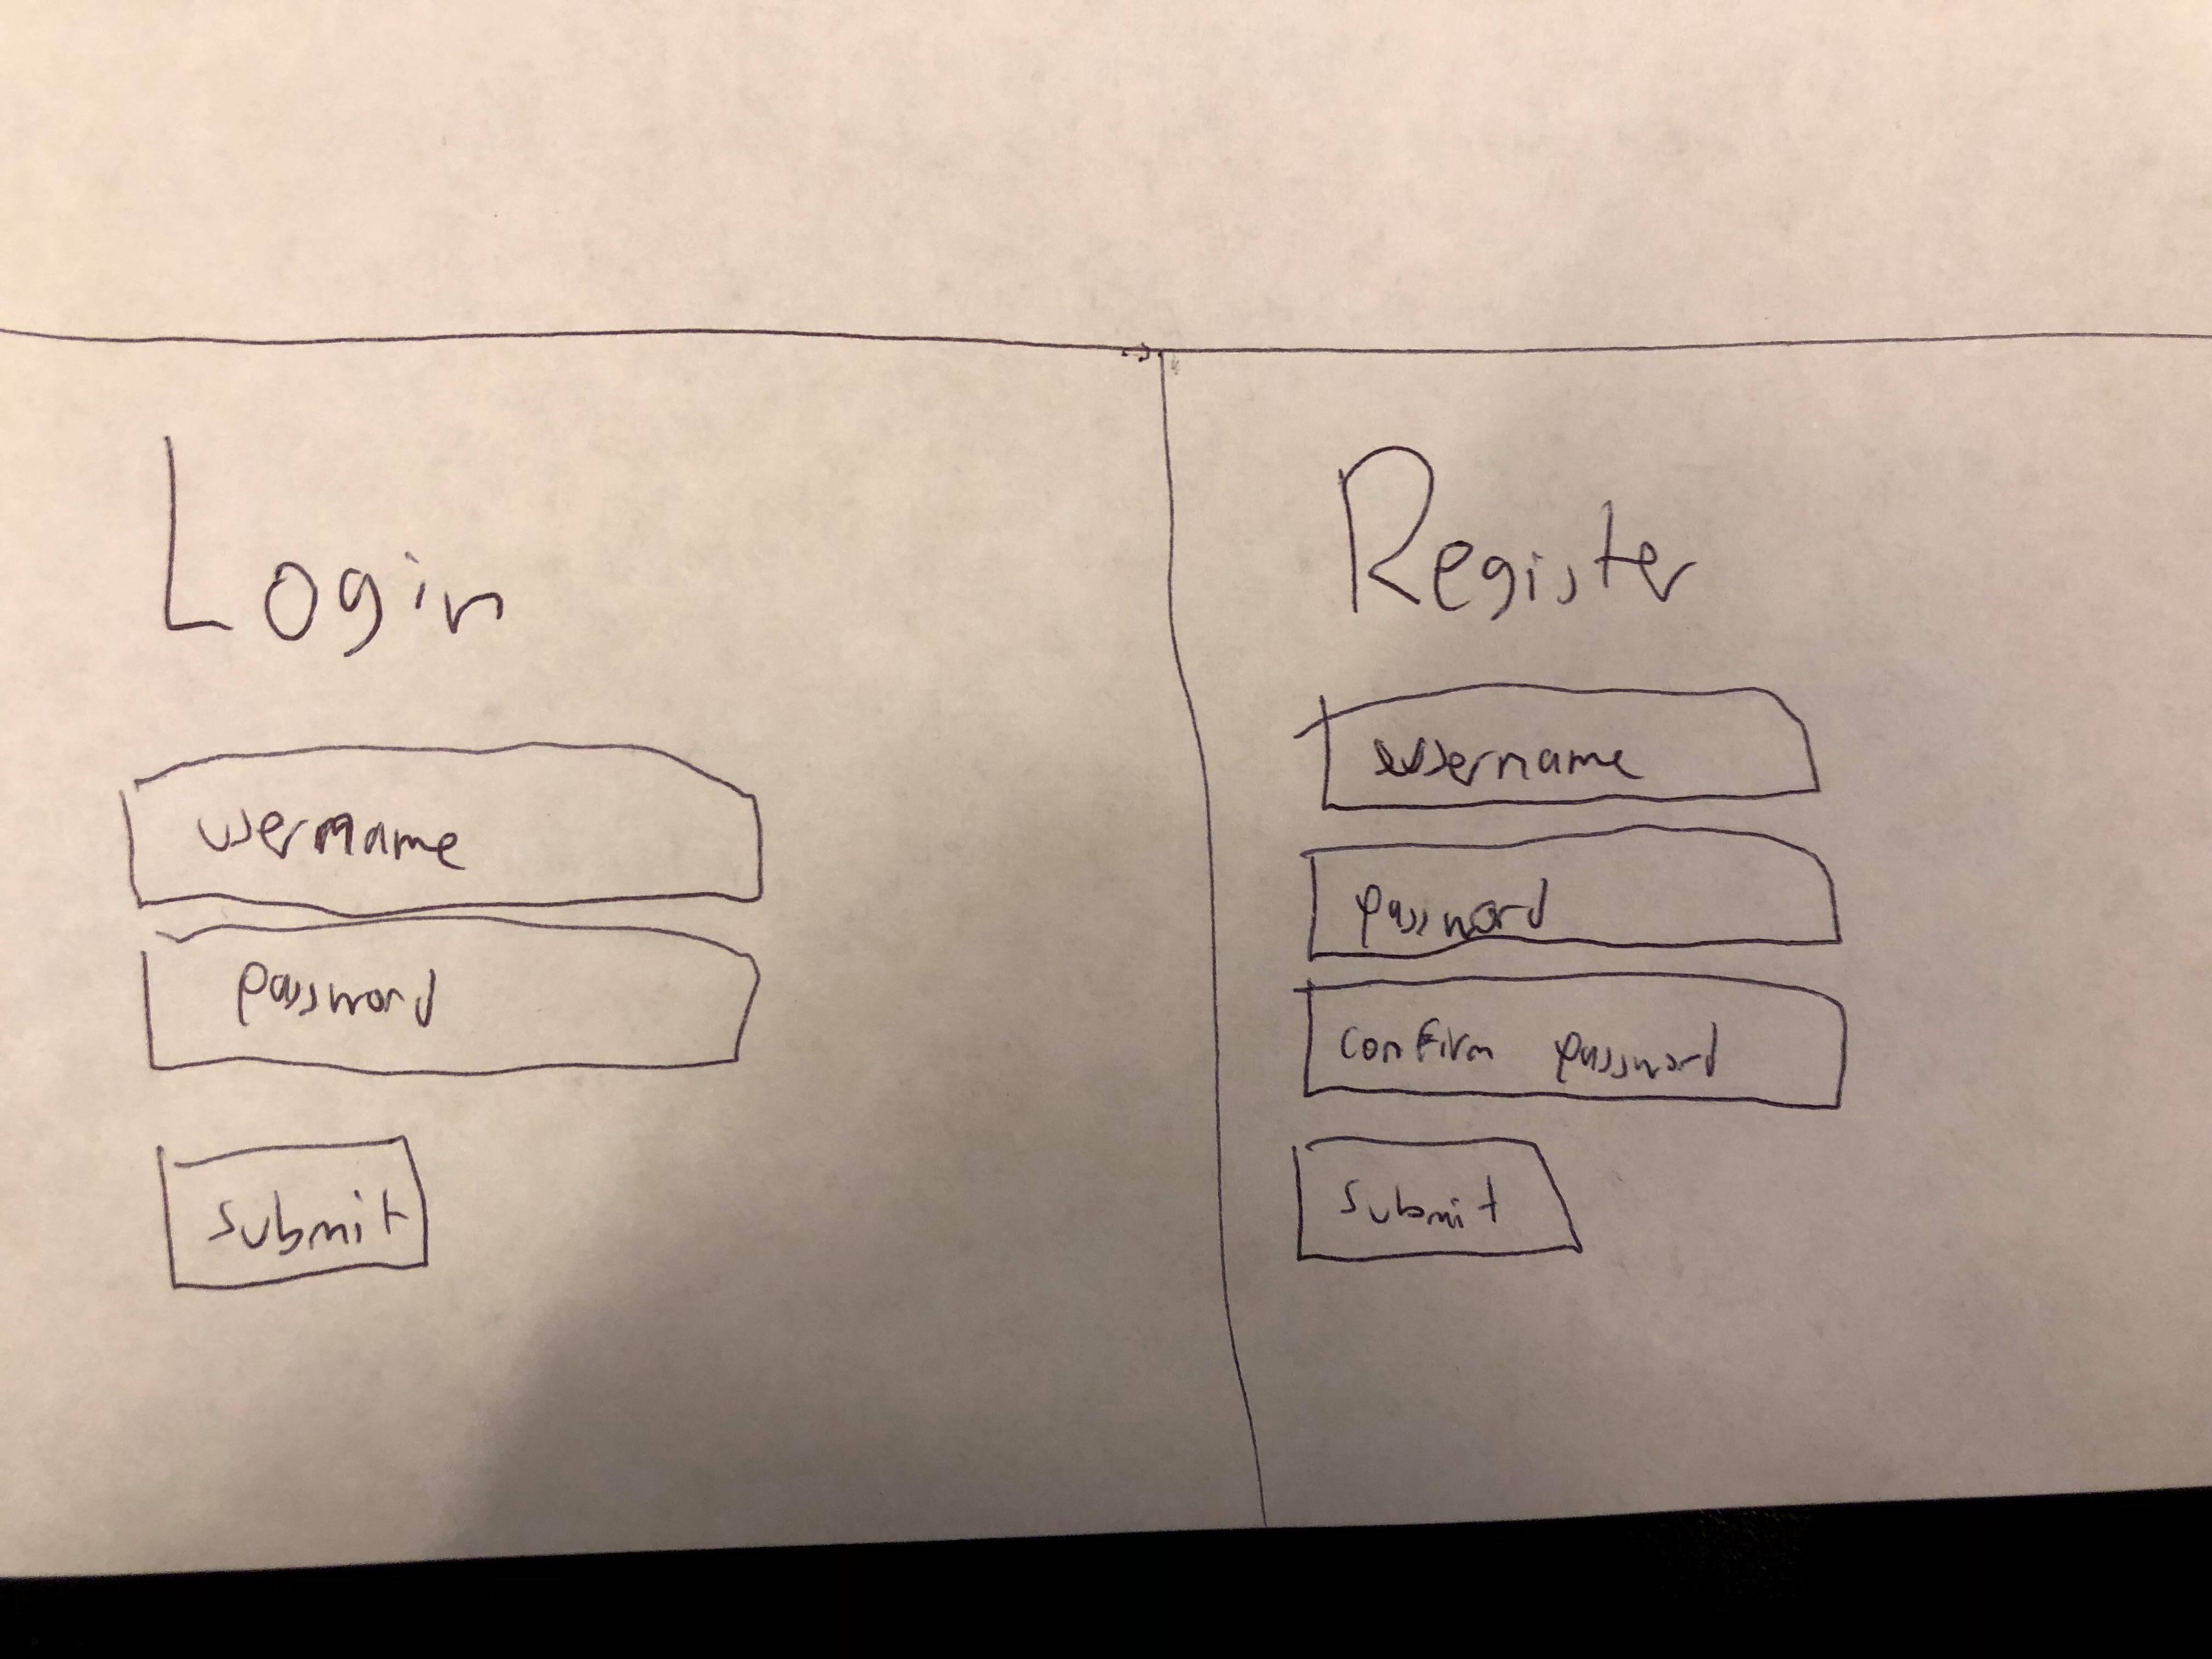 Login
username
password
submit
Register
username
password
confirm password
submit